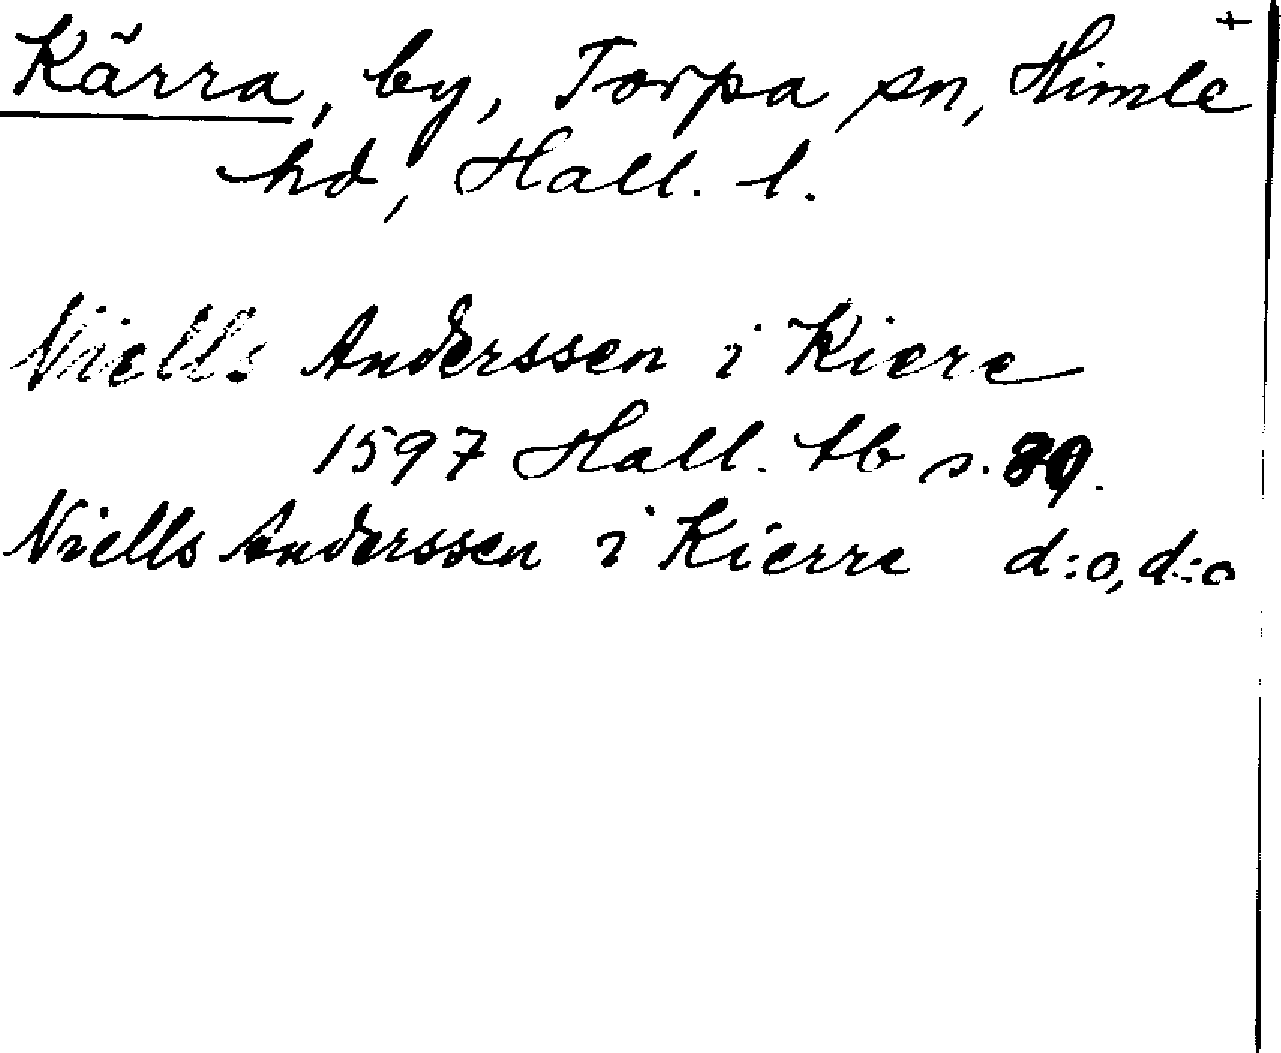 Kärra, by, Torpa sn, Himle
hd, Hall. l.
Niells Anderssen i Kiere
1597 Hall. tb s. 39.
Niells Anderssen i Kierre d:o, d:o